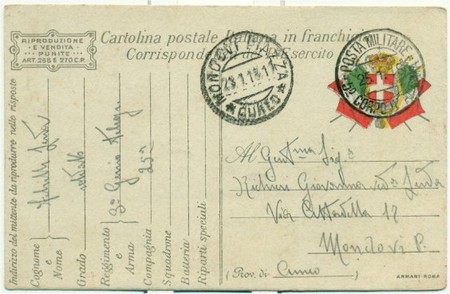 RIPRODUZIONE
E VENDITA
PUNITE
ART. 285 E 270 C.P.
Cartolina postale italiana in franchigia
Corrispondenza del R. Esercito
MONDOVI PIAZZA
CUNEO
POSTA MILITARE
Indirizzo del mittente da riprodurre nelle risposte
Cognome e Nome
Grado soldato
Reggimento e Arma 3° Genio
Compagnia 25a
Squadrone
Batteria
Riparti speciali
Al Gent.ma Sig.a
Giovanna
Via Cittadella 17
Mondovì P.
(Prov. di Cuneo
ARMANI-ROMA